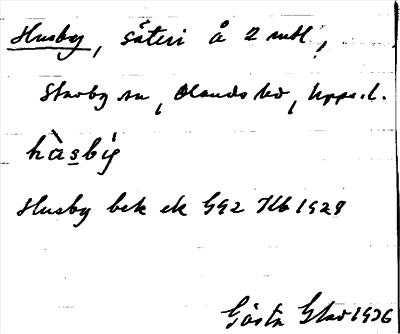 Husby, säteri å 2 mtl,
Stavby sn, Olands hd, Upps. l.
hàsbig
Husby bek ek G92 Kb 1929
Gösta 1936